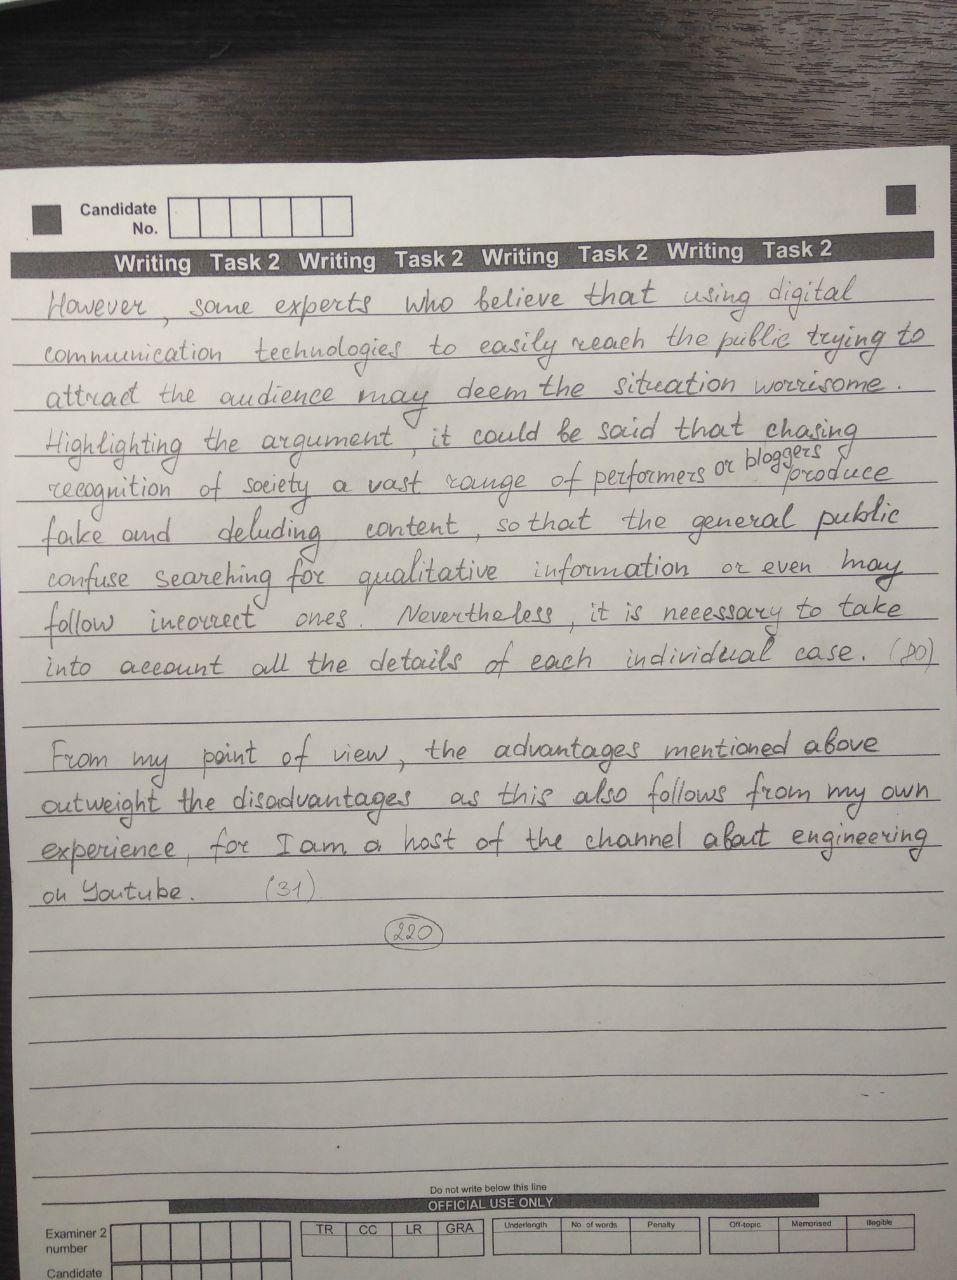 Candidate
No.
Writing Task 2 Writing Task 2 Writing Task 2 Writing Task 2
However, some experts who believe that using digital
communication technologies to easily reach the public trying to
attract the audience may deem the situation worrisome.
Highlighting the argument, it could be said that chasing
recognition of society a vast range of performers or bloggers produce
fake and deluding content, so that the general public
confuse searching for qualitative information or even may
follow incorrect ones. Nevertheless, it is necessary to take
into account all the details of each individual case. (80)
From my point of view, the advantages mentioned above
outweight the disadvantages as this also follows from my own
experience, for I am a host of the channel about engineering
on Youtube. (31)
220
Do not write below this line
OFFICIAL USE ONLY
Examiner 2
number
TR CC LR GRA
Underlength No. of words Penalty
Off-topic Memorised Illegible
Candidate